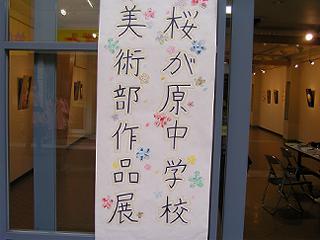 桜が原中学校
美術部作品展